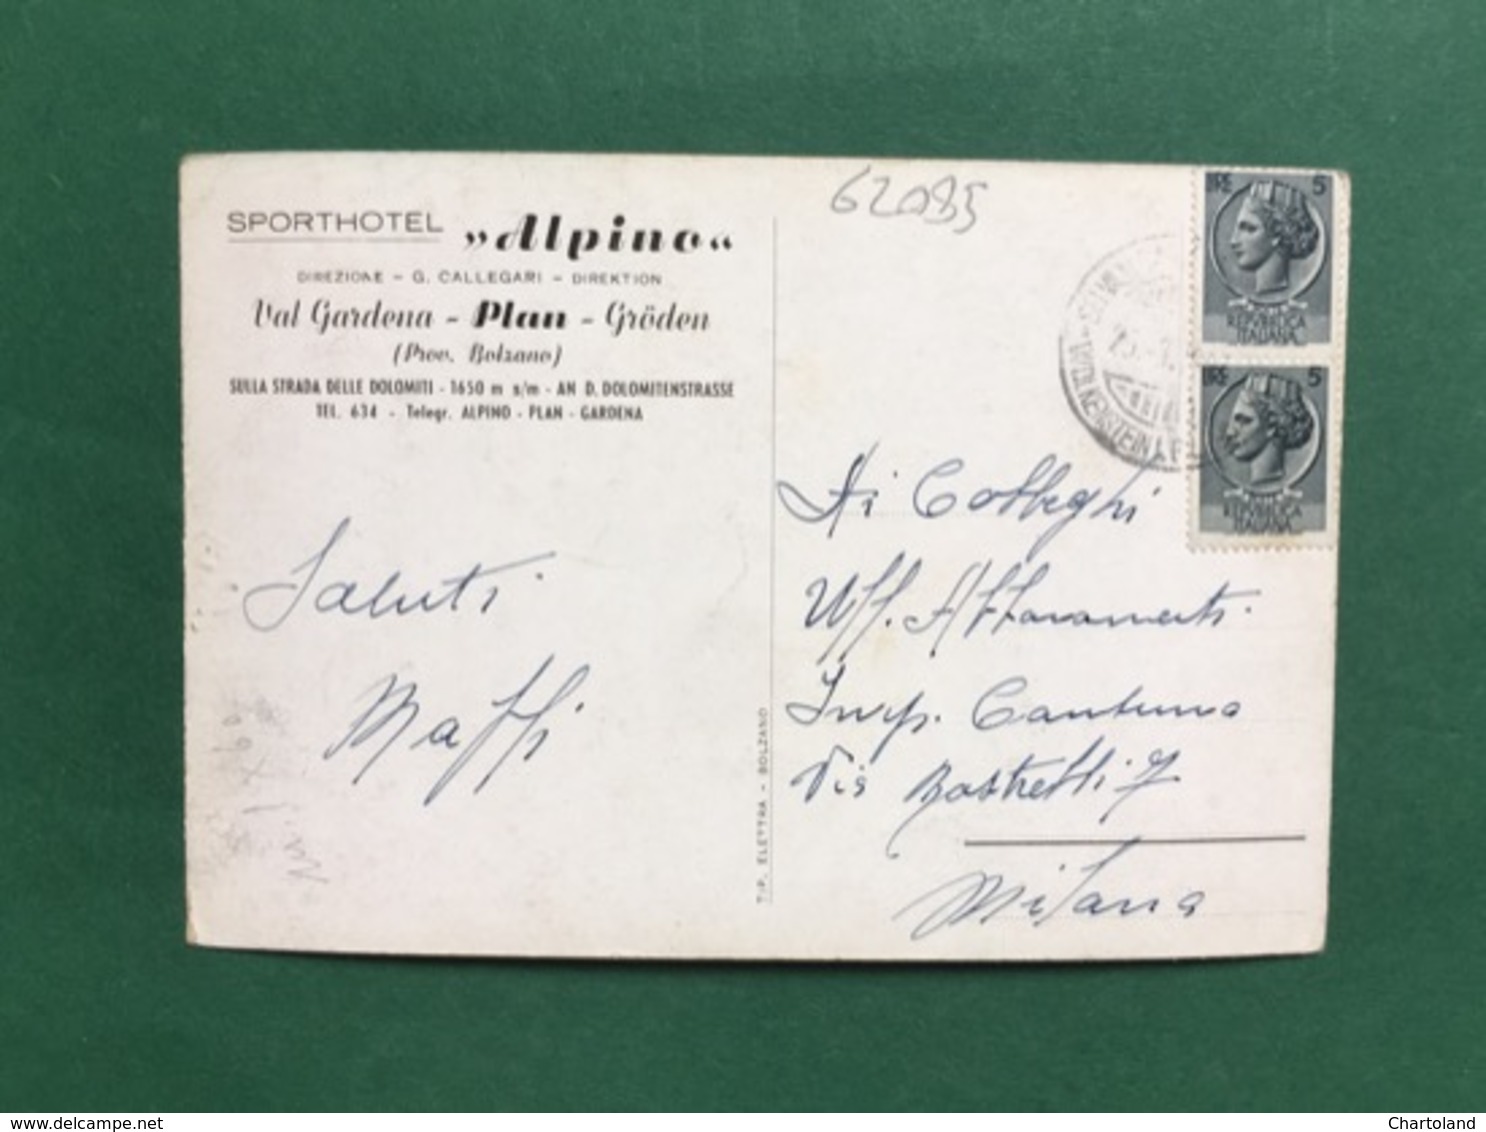 SPORTHOTEL »Alpino«
DIREZIONE - G. CALLEGARI - DIREKTION
Val Gardena - Plan - Gröden
(Prov. Bolzano)
SULLA STRADA DELLE DOLOMITI - 1650 m s/m - AN D. DOLOMITENSTRASSE
TEL. 634 - Telegr. ALPINO - PLAN - GARDENA
Saluti
Maffi
TIP. ELETTRA - BOLZANO
62085
LIRE 5
REPUBBLICA
ITALIANA
LIRE 5
REPUBBLICA
ITALIANA
WOLKENSTEIN
Ai Colleghi
Uff.
Imp.
Via 7
Milano
delcampe.net
Chartoland